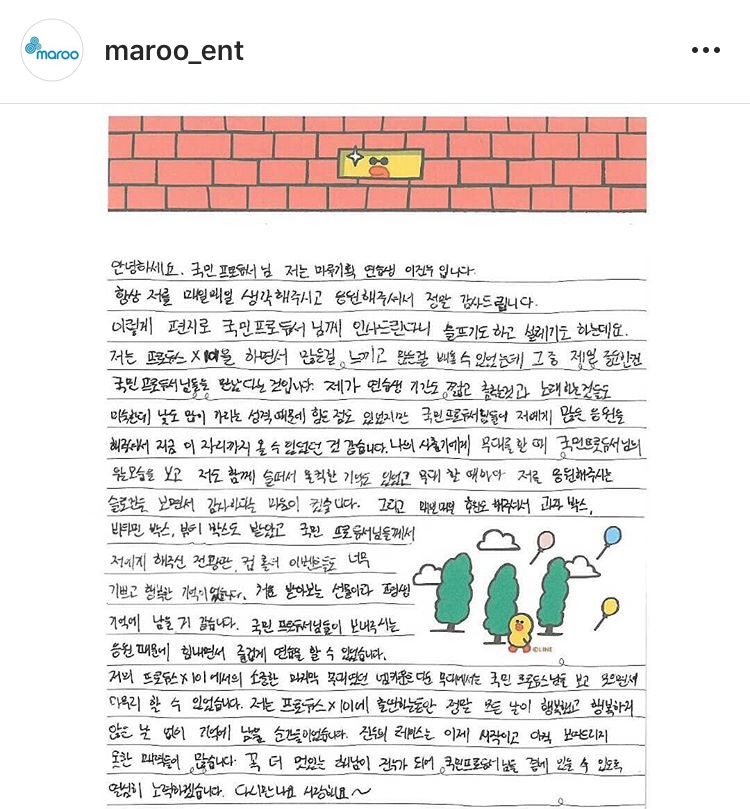 maroo
maroo_ent
안녕하세요. 국민 프로듀서님 저는 마루기획 연습생 이진우입니다.
항상 저를 매일매일 생각해주시고 응원해주셔서 정말 감사드립니다.
이렇게 편지로 국민프로듀서님께 인사드린다니 슬프기도 하고 설레기도 하는데요.
저는 프로듀스 X 101을 하면서 많은걸 느끼고 많은걸 배울 수 있었는데 그 중 제일 중요한건
국민 프로듀서님들을 만났다는 것입니다. 제가 연습생 기간도 짧고 춤추는것과 노래하는것들도
미숙한데 낯도 많이 가리는 성격 때문에 힘든 점도 있었지만 국민프로듀서님들이 저에게 많은 응원을
해주셔서 지금 이 자리까지 올 수 있었던 것 같습니다. 나의 사춘기에게 무대를 한 때 국민프로듀서님의
우는모습을 보고 저도 함께 슬퍼서 울컥한 기억도 있었고 무대 할 때마다 저를 응원해주시는
슬로건을 보면서 감사하다는 마음이 컸습니다. 그리고 매일매일 투표도 해주셔서 과자 박스,
비타민 박스, 뷰티 박스도 받았고 국민 프로듀서님들께서
저에게 해주신 전광판, 컵 홀더 이벤트들도 너무
기쁘고 행복한 기억이었습니다. 처음 받아보는 선물이라 평생
기억에 남을거 같습니다. 국민 프로듀서님들이 보내주시는
응원 때문에 힘내면서 즐겁게 연습을 할 수 있었습니다.
©LINE
저의 프로듀스 X 101 에서의 소중한 마지막 무대였던 무대에서는 국민 프로듀스님을 보고 웃으면서
마무리 할 수 있었습니다. 저는 프로듀스 X 101에 출연하는동안 정말 모든 날이 행복했고 행복하지
않은 날 없이 기억에 남을 순간들이었습니다. 진우의 레이스는 이제 시작이고 아직 보여드리지
못한 매력들이 많습니다. 꼭 더 멋있는 해남이 진우가 되어 국민프로듀서님들 곁에 있을 수 있도록
열심히 노력하겠습니다. 다시만나요 사랑해요~